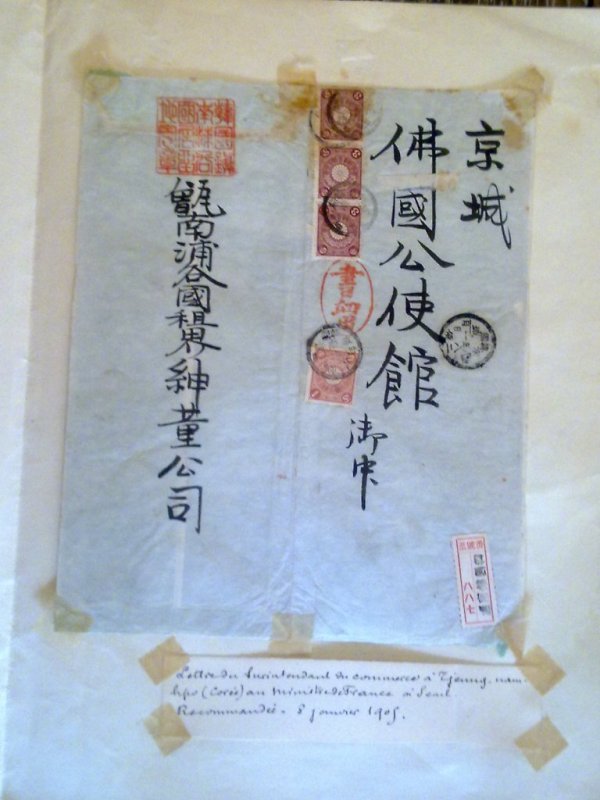 京城
佛國公使館
御中
書留
甑南浦各國租界紳董公司
八八七
Lettre du Surintendant du commerce à Tjeung-nam-
hpo (Corée) au Ministre de France à Seoul
Recommandée - 8 janvier 1905.